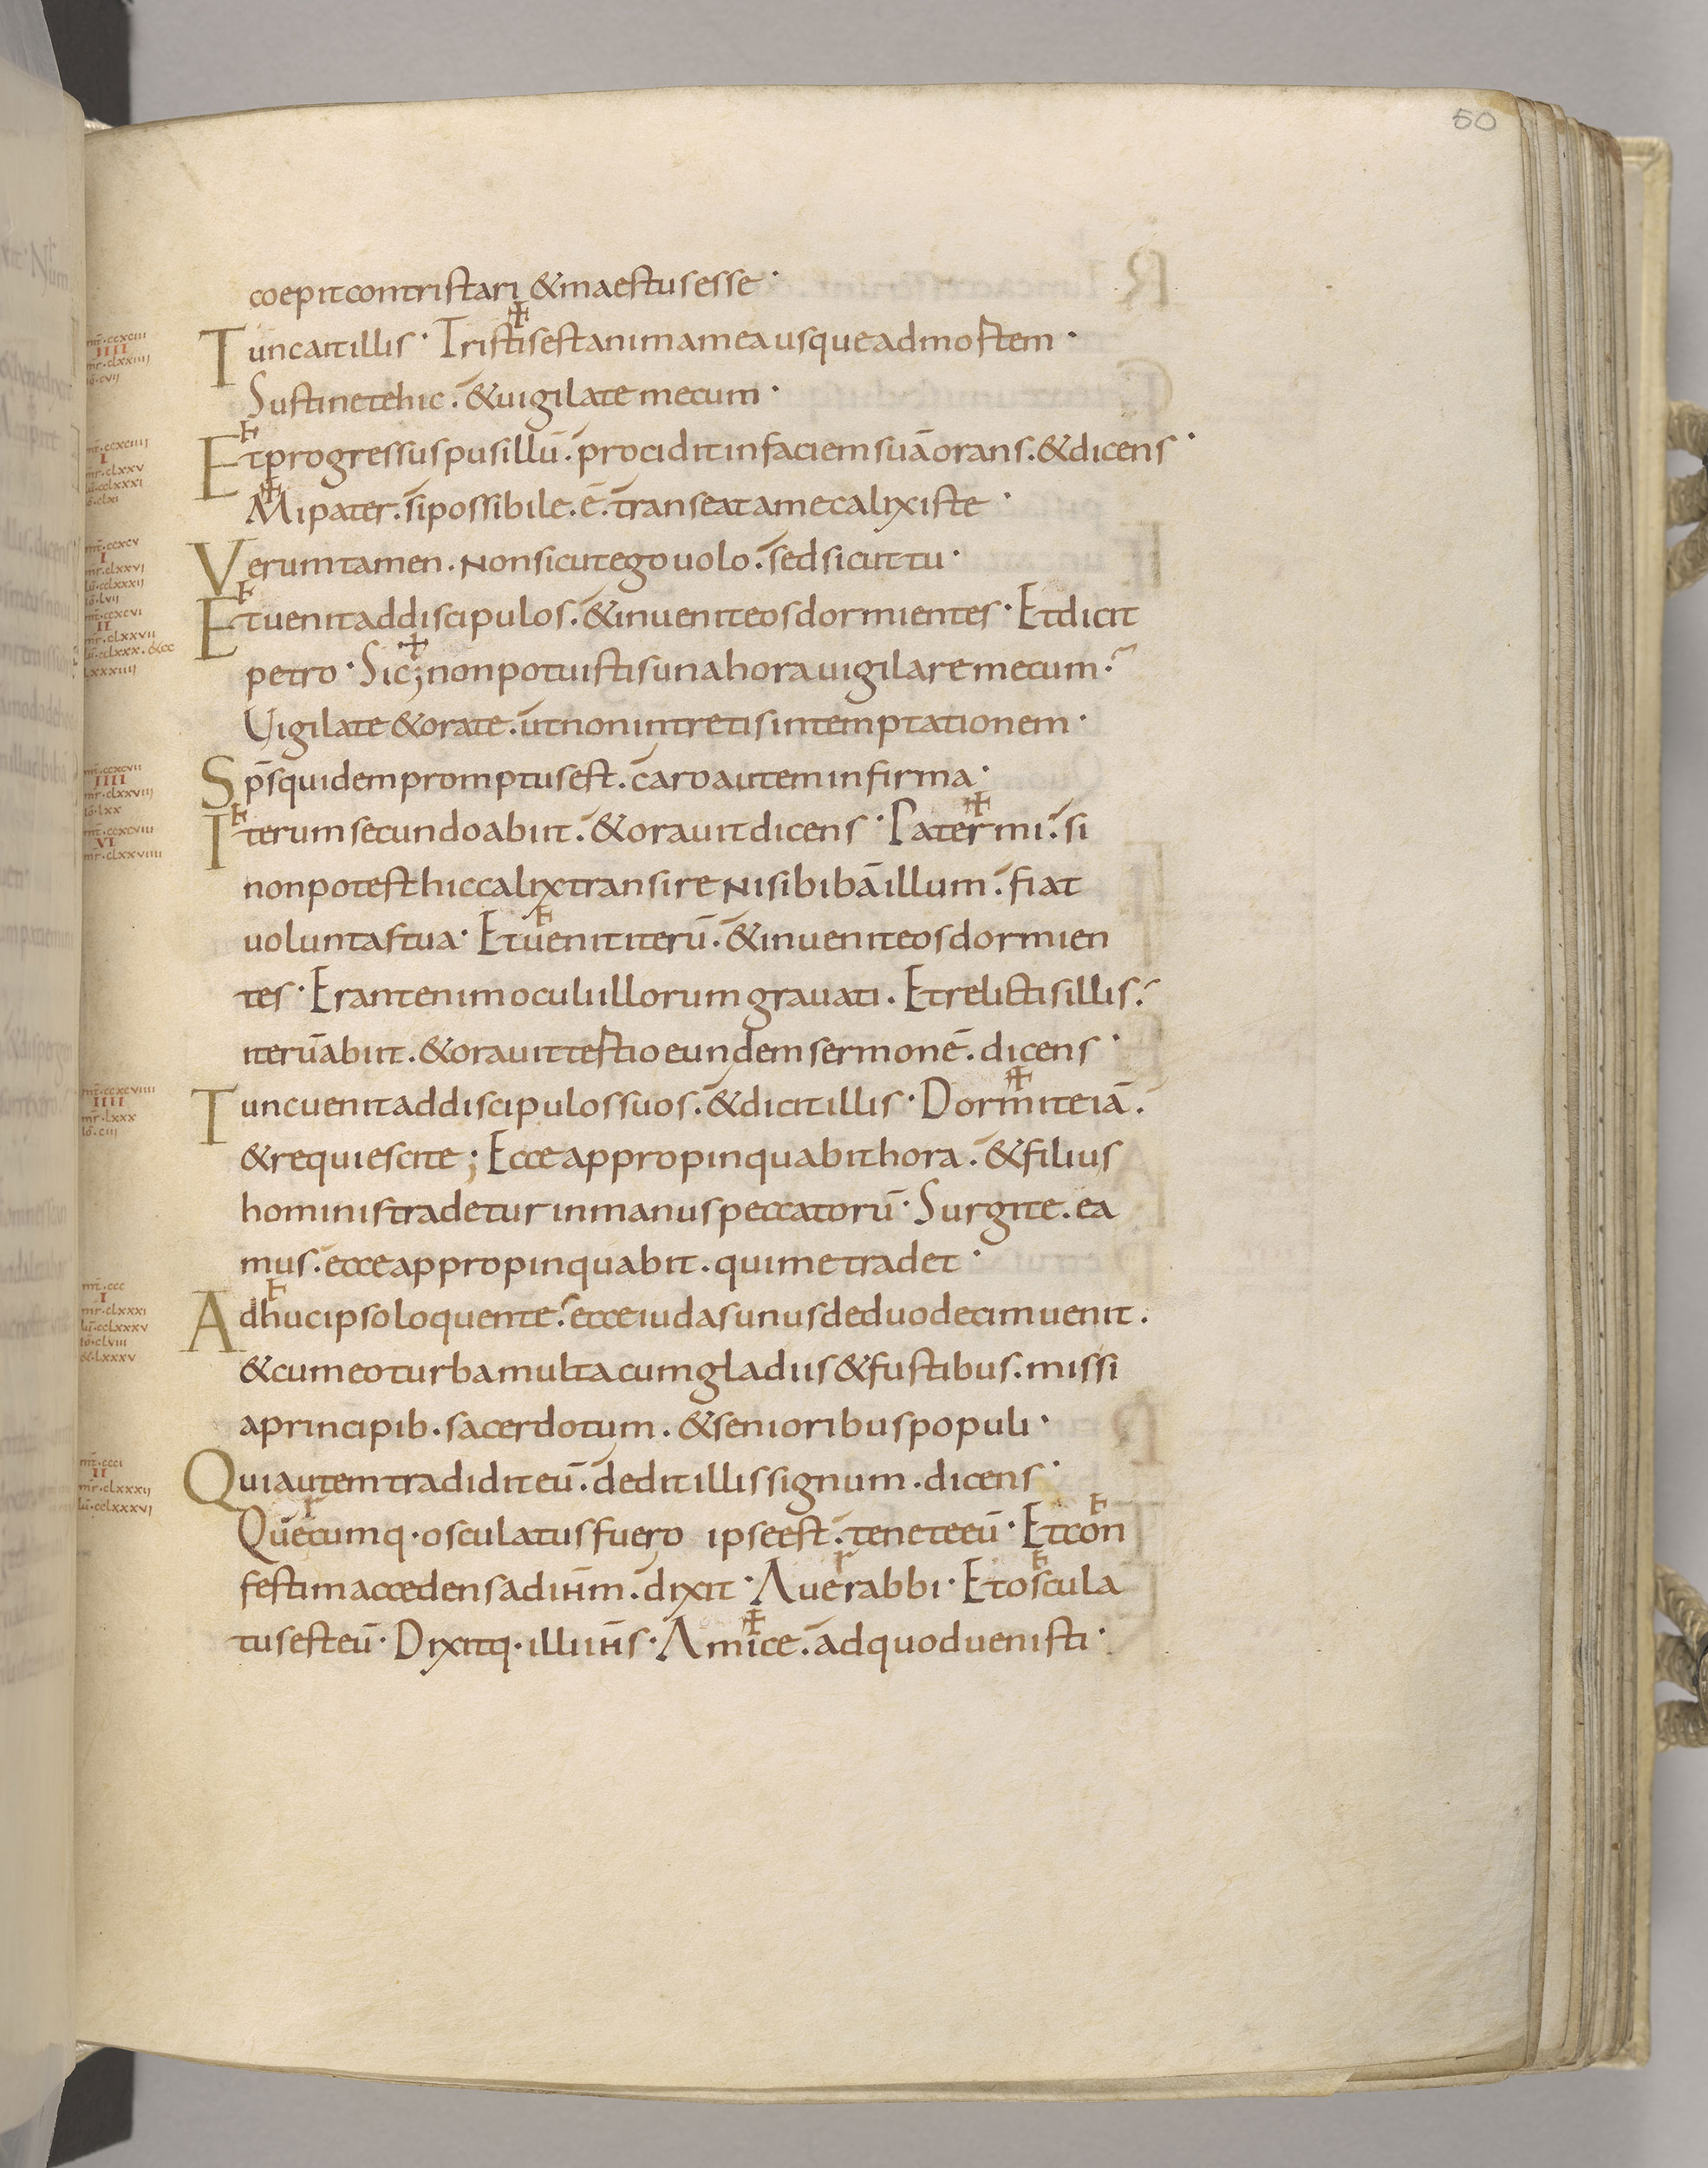 50
coepit contristari & maestus esse·
Tunc ait illis· Tristis est anima mea usque ad mostem·
Sustinete hic. & uigilate mecum·
Et progressus pusillū. procidit in faciem suā orans. & dicens·
Mi pater. si possibile. ē. transeat a me calix iste·
Verumtamen. non sicut ego uolo. sed sicut tu·
Et uenit ad discipulos. & inuenit eos dormientes· Et dicit
petro· Sic; non potuistis una hora uigilare mecum.
Uigilate & orate. ut non intretis in temptationem·
Sp̄s quidem promptus est. caro autem infirma·
Iterum secundo abiit. & orauit dicens· Pater mi. si
non potest hic calix transire nisi bibā illum. fiat
uoluntas tua· Et uenit iterū. & inuenit eos dormien
tes· Erant enim oculi illorum grauati. Et relictis illis.
iterū abiit. & orauit testio eundem sermonē. dicens·
Tunc uenit ad discipulos suos. & dicit illis· Dormite iā.
& requiescite; Ecce appropinquabit hora. & filius
hominis tradetur in manus peccatorū· Surgite. ea
mus. ecce appropinquabit. qui me tradet·
Adhuc ipso loquente. ecce iudas unus de duodecim uenit.
& cum eo turba multa cum gladiis & fustibus. missi
a principib. sacerdotum. & senioribus populi·
Qui autem tradidit eū. dedit illis signum. dicens·
Quecumq· osculatus fuero ipse est. tenete eū· Et con
festim accedens ad ihm̄. dixit· Aue rabbi· Et oscula
tus est eū· Dixitq· illi ihs̄· Amice. ad quod uenisti·
mt̄·ccxciii
IIII
mr̄·clxxiiii
iō·cvii
mt̄·ccxciiii
I
mr·clxxv
lū·cclxxxi
iō·clxi
mt̄·ccxcv
I
mr̄·clxxvi
lū·cclxxxii
iō·lvii
mt̄·ccxcvi
II
mr̄·clxxvii
lū·cclxxx·&cc
lxxxiiii
mt̄·ccxcvii
IIII
mr̄·clxxviii
iō·lxx
mt̄·ccxcviii
VI
mr̄·clxxviiii
mt̄·ccxcviiii
IIII
mr̄·lxxx
iō·ciii
mt̄·ccc
I
mr̄·clxxxi
lū·cclxxxv
iō·clviii
&·lxxxv
mt̄·ccci
II
mr̄·clxxxii
lū·cclxxxvi